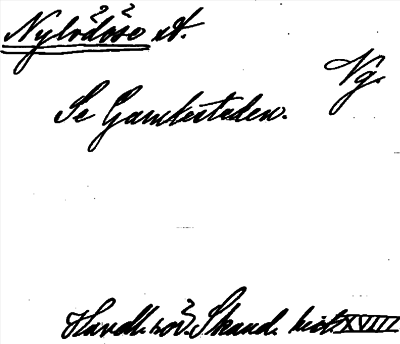 Nylödöse st.
Vg.
Se Gamlestaden.
Handl. rör. Skand. hist. XVIII